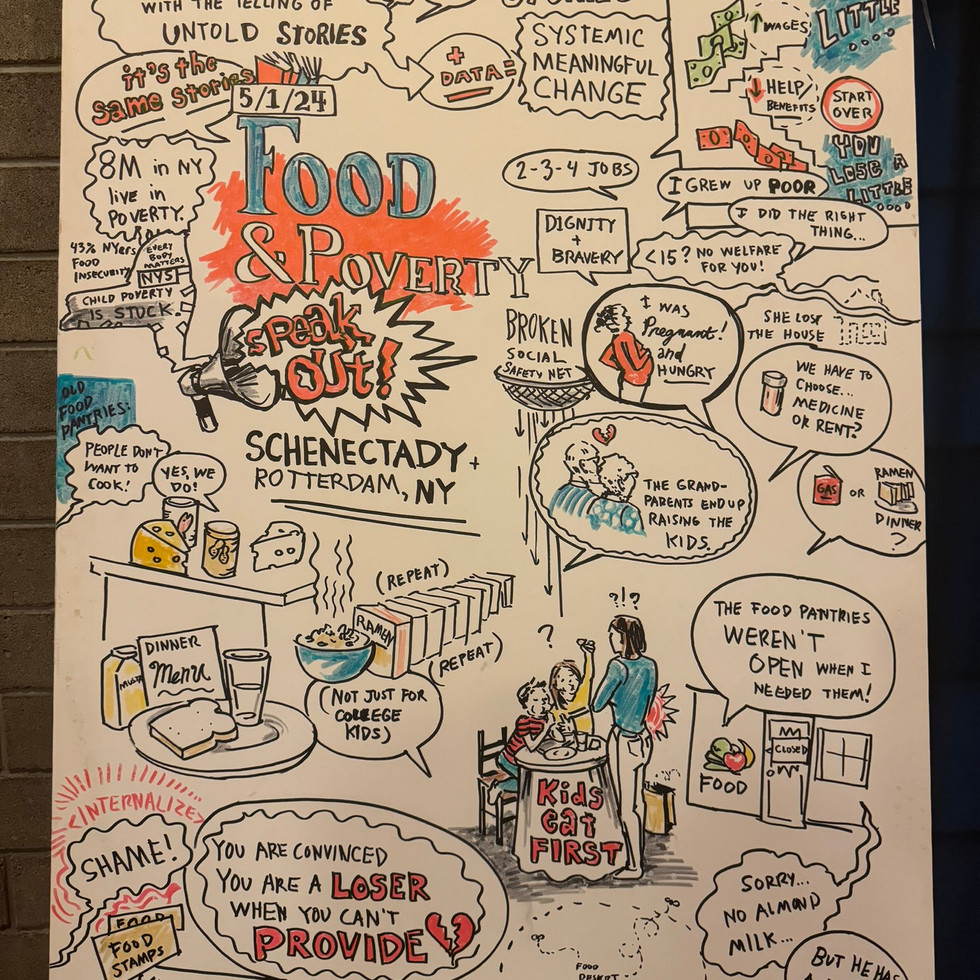 WITH THE TELLING OF
UNTOLD STORIES
it's the
same stories
5/1/24
+
DATA=
SYSTEMIC
MEANINGFUL
CHANGE
WAGES
LITTLE
....
HELP/
BENEFITS
START
OVER
YOU
LOSE A
LITTLE
....
8M in NY
live in
POVERTY.
43% NYers
FOOD
INSECURITY
EVERY
BODY
MATTERS
NYS
CHILD POVERTY
IS STUCK.
FOOD
& POVERTY
SPEAK
OUT!
SCHENECTADY +
ROTTERDAM, NY
2-3-4 JOBS
DIGNITY
+
BRAVERY
I GREW UP POOR
I DID THE RIGHT
THING...
<15? NO WELFARE
FOR YOU!
BROKEN
SOCIAL
SAFETY NET
I WAS
Pregnant!
and
HUNGRY
SHE LOST
THE HOUSE
WE HAVE TO
CHOOSE...
MEDICINE
OR RENT?
THE GRAND-
PARENTS END UP
RAISING THE
KIDS.
GAS OR
RAMEN
DINNER
?
OLD
FOOD
PANTRIES:
PEOPLE DON'T
WANT TO
COOK!
YES, WE
DO!
(REPEAT)
RAMEN
(REPEAT)
(NOT JUST FOR
COLLEGE
KIDS)
MILK
DINNER
Menu
?
?!?
Kids
eat
FIRST
THE FOOD PANTRIES
WEREN'T
OPEN WHEN I
NEEDED THEM!
CLOSED
FOOD
<INTERNALIZE>
SHAME!
FOOD
FOOD
STAMPS
YOU ARE CONVINCED
YOU ARE A LOSER
WHEN YOU CAN'T
PROVIDE
SORRY...
NO ALMOND
MILK...
FOOD
DESERT
BUT HE HAS